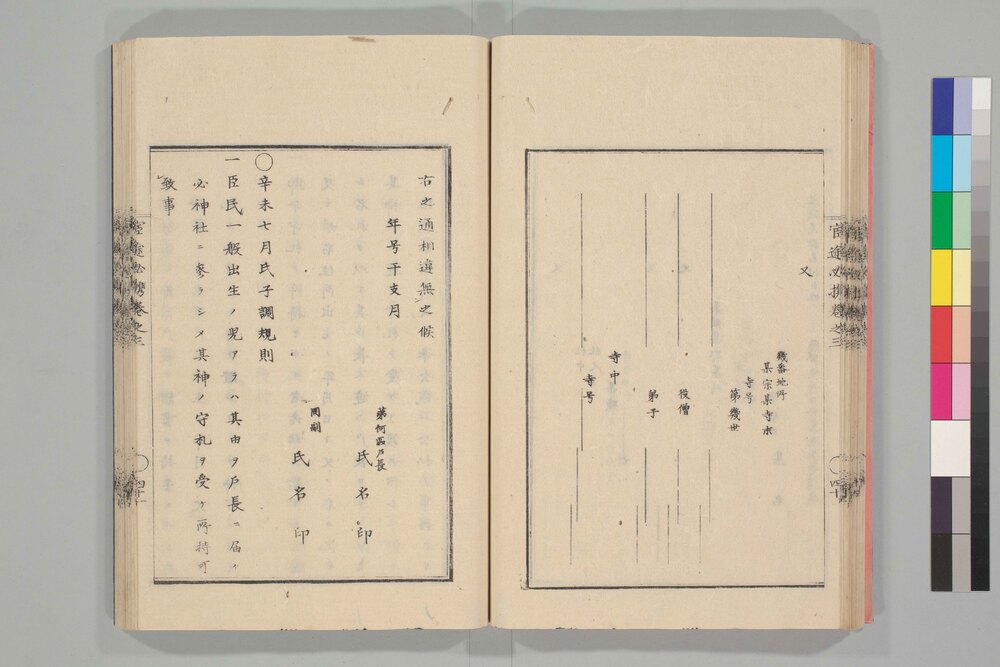 又
幾番地所
某宗某寺末
寺号
第幾世
役僧
弟子
寺中
寺号
右之通相違無之候
年号干支月
第何区戸長
氏名印
同副
氏名印
〇辛未七月氏子調規則
一臣民一般出生ノ児アラハ其由ヲ戸長ニ届ケ
必神社ニ参ラシメ其神ノ守札ヲ受ケ所持可
致事